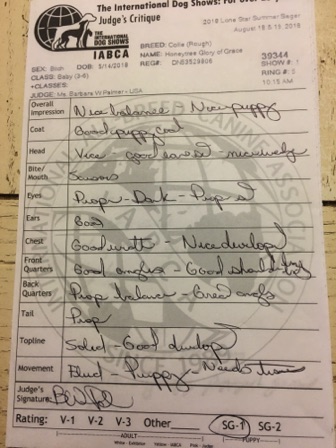 The International Dog Shows: For Over
Judge's Critique
THE INTERNATIONAL DOG SHOWS
IABCA
2018 Lone Star Summer Sieger
August 18 & 19, 2018
BREED: Collie (Rough)
NAME: Honeytree Glory of Grace
39344
SEX: Bitch DOB: 5/14/2018 REG#: DN53529806
SHOW #: 1
CLASS: Baby (3-6)
RING #: 3
+CLASSES:
10:15 AM
JUDGE: Ms. Barbara W Palmer - USA
Overall Impression Nice balance - Nice puppy
Coat Good puppy coat
Head Nice - good - nice
Bite/Mouth Scissors
Eyes Prop - Dark - Prop
Ears Good
Chest Good width - Nice develop
Front Quarters Good angles - Good should
Back Quarters Prop balance - Good angles
Tail Prop
Topline Solid - Good develop
Movement Fluid - Puppy - Needs time
Judge's Signature:
Rating: V-1 V-2 V-3 Other SG-1 SG-2
ADULT PUPPY